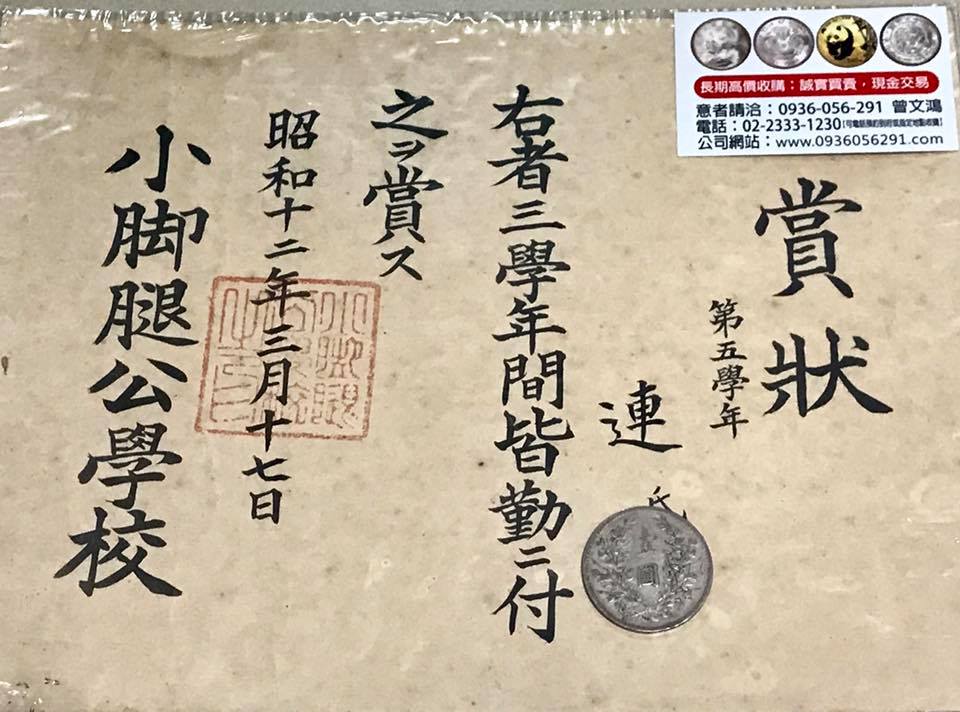 賞狀
第五學年
連
氏
右者三學年間皆勤ニ付
之ヲ賞ス
昭和十二年三月十七日
小脚腿公學校
壹圓
長期高價收購：誠實買賣，現金交易
意者請洽：0936-056-291 曾文鴻
電話：02-2333-1230
公司網站：www.0936056291.com